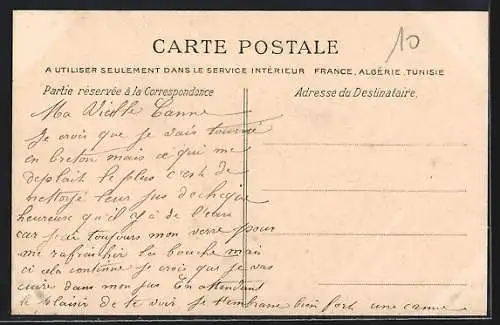 10
CARTE POSTALE
A UTILISER SEULEMENT DANS LE SERVICE INTÉRIEUR FRANCE, ALGÉRIE, TUNISIE
Partie réservée à la Correspondance
Adresse du Destinataire.
Ma Vieille Canne
Je crois que je vais tourné
en breton mais ce qui me
deplait le plus c'est de
nettoyé leur jus de
heureuse qu'il y a de l'eau
car j'ai toujours mon verre pour
me rafraichir la bouche mais
si cela continue je crois que je vas
cuire dans mon jus En attendant
le plaisir de te voir je t'embrasse bien fort une canne